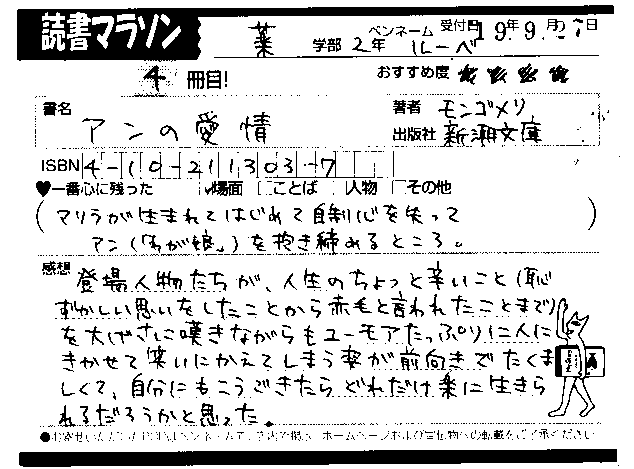 読書マラソン
薬 学部 2年 ペンネーム ルーペ 受付日 19年9月27日
4 冊目! おすすめ度
書名 アンの愛情
著者 モンゴメリ
出版社 新潮文庫
ISBN 4-10-211303-7
♥一番心に残った 場面 ことば 人物 その他
(マリラが生まれてはじめて自制心を失って
アン(「わが娘」)を抱き締めるところ。)
感想 登場人物たちが、人生のちょっと辛いこと(恥
ずかしい思いをしたことから赤毛と言われたことまで)
を大げさに嘆きながらもユーモアたっぷりに人に
きかせて笑いにかえてしまう姿が前向きでたくま
しくて、自分にもこうできたらどれだけ楽に生きら
れるだろうかと思った。